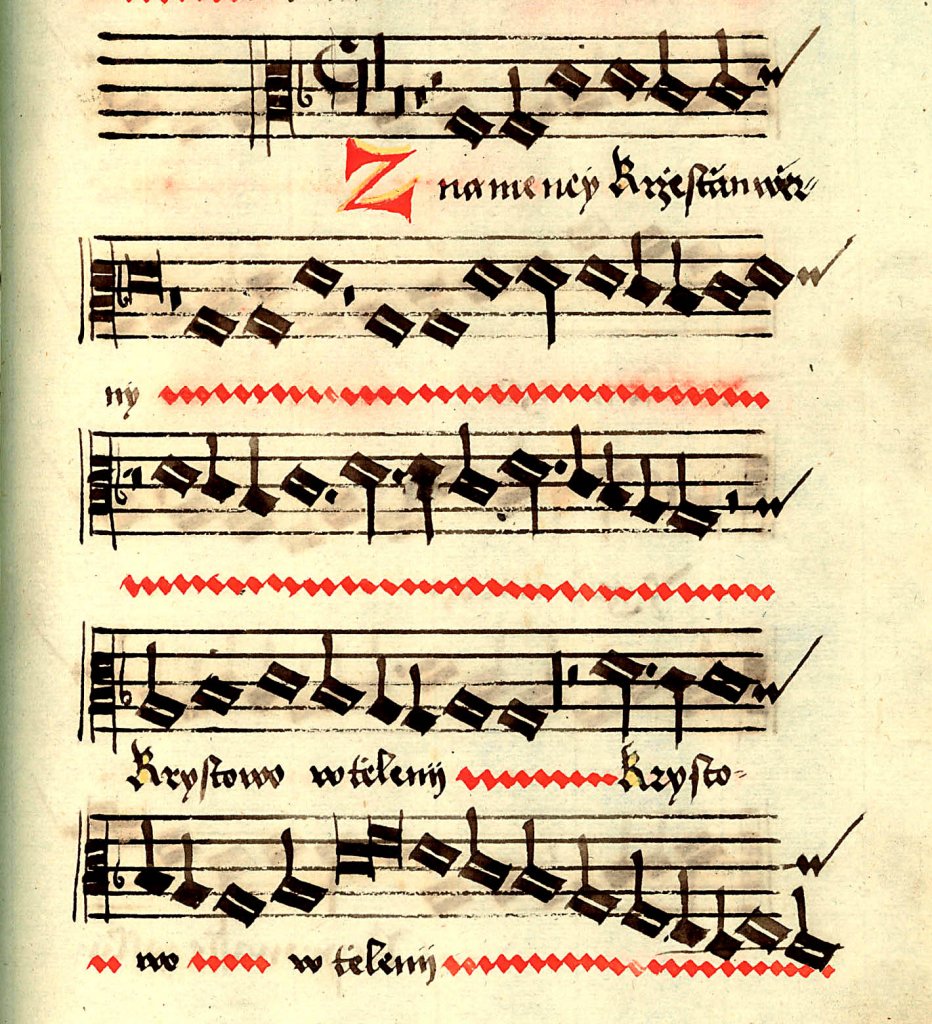 Znamency Krzestianwier-
ny
Krystowo wtělenij Krysto-
wo wtělenij